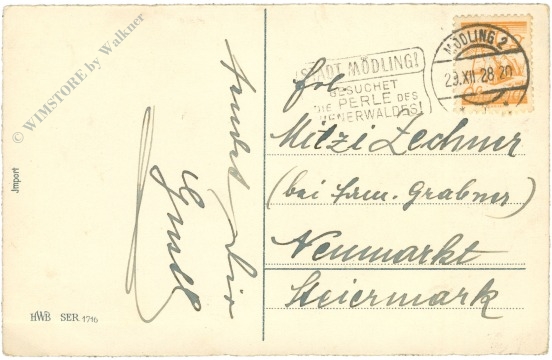 © WIMSTORE by Walkner
Jmport
HWB SER. 1716
Gusti
STADT MÖDLING!
BESUCHET
DIE PERLE DES
WIENERWALDES!
MÖDLING 2
29.XII.28 20
Frl.
Mitzi Lechner
(bei Fam. Grabner)
Neumarkt
Steiermark